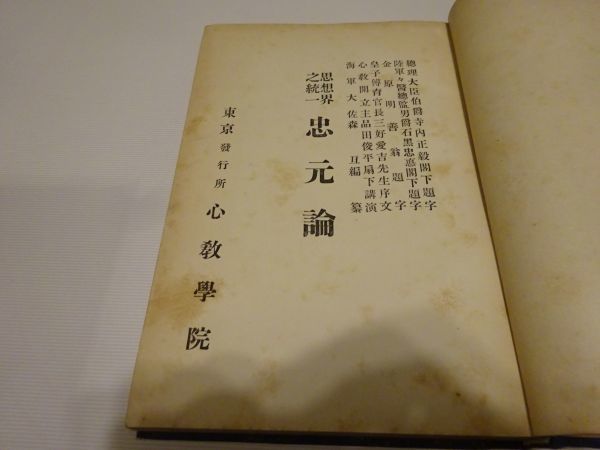 總理大臣伯爵寺內正毅閣下題字
陸軍々醫總監男爵石黑忠悳閣下題字
金原明善翁題字
皇子傅育官長三好愛吉先生序文
心敎開立主品田俊平扇下講演
海軍大佐森亙編纂
思想界之統一
忠元論
東京發行所心敎學院